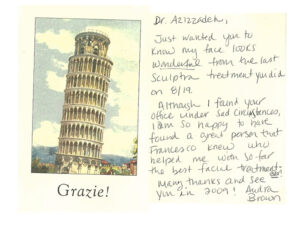 Grazie!
Dr. Azizzadeh,
Just wanted you to
know my face looks
wonderful from the last
Sculptra treatment you did
on 8/19.
Although I found your
office under sad circumstances,
I am so happy to have
found a great person that
Francesco knew who
helped me with so far
the best facial treatment
ever!
Many thanks and see
you in 2009! Audra
Brown